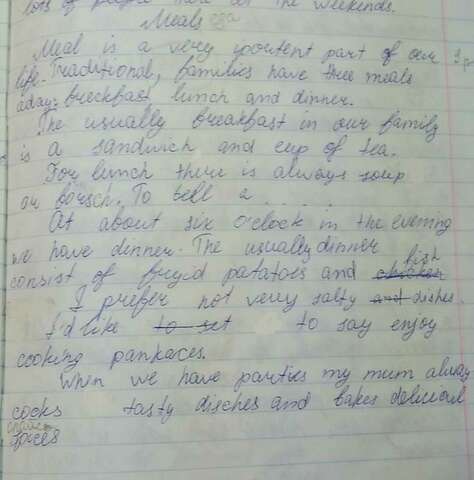 lots of people there at the weekends.
Meals еда
Meal is a very iportent part of our
life. Traditional, families have three meals
a day: breckfast lunch and dinner.
The usually breakfast in our family
is a sandwich and cup of tea.
For lunch there is always soup
or borsch. To tell a . . . . .
At about six o'clock in the evening
we have dinner. The usually dinner
fish
consist of fryid patatoes and chicken
I prefer not very salty and dishes.
I'd like to set to say enjoy
cooking pankaces.
When we have parties my mum alway
cocks tasty disches and bakes